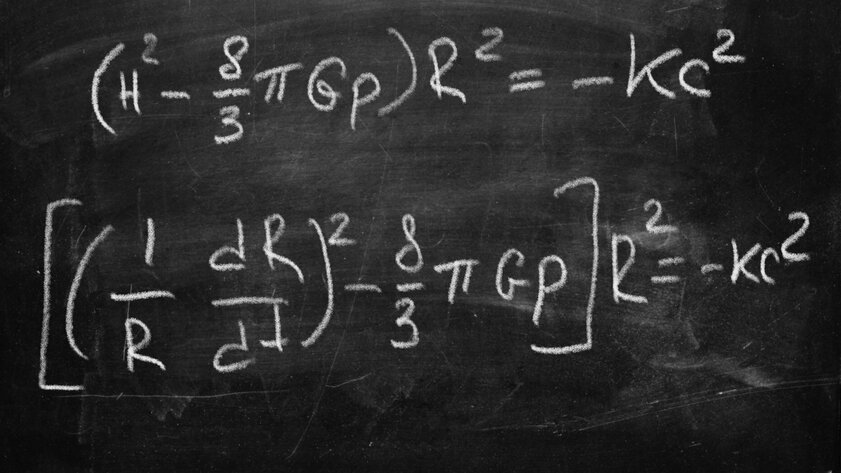 (H² - 8/3 π Gρ) R² = - KC²
[(1/R dR/dI)² - 8/3 π Gρ] R² = - KC²